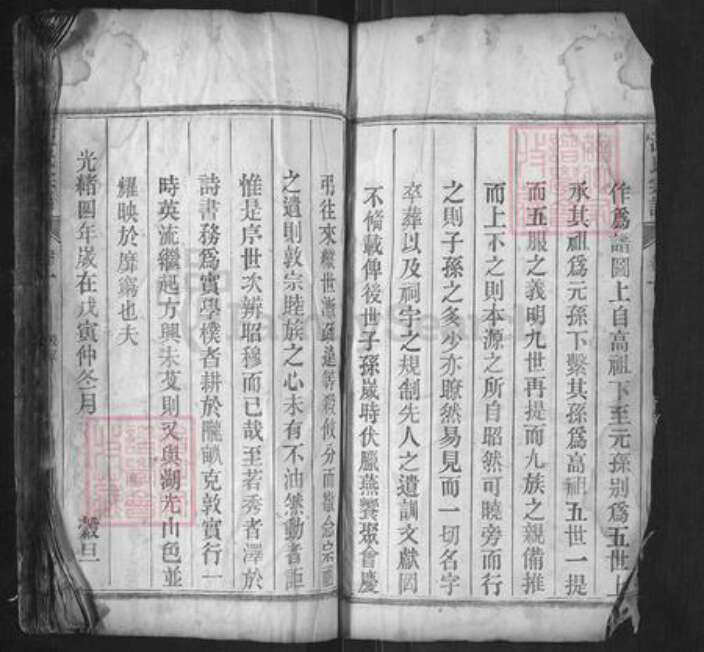 作爲譜圖上自高祖下至元孫別爲五世上
承其祖爲元孫下繫其孫爲高祖五世一提
而五服之義明九世再提而九族之親備推
而上下之則本源之所自昭然可曉旁而行
之則子孫之多少亦瞭然易見而一切名字
卒葬以及祠宇之規制先人之遺訓文獻罔
不備載俾後世子孫歲時伏臘燕饗聚會慶
弔往來世漸而遠等殺攸分而散念宗祖
之遺則敦宗睦族之心未有不油然動者詎
惟是序世次辨昭穆而已哉至若秀者澤於
詩書務爲實學樸者耕於隴畝克敦實行一
時英流繼起方興未艾則又與湖光山色並
耀映於靡窮也夫
光緒四年歲在戊寅仲冬月 穀旦